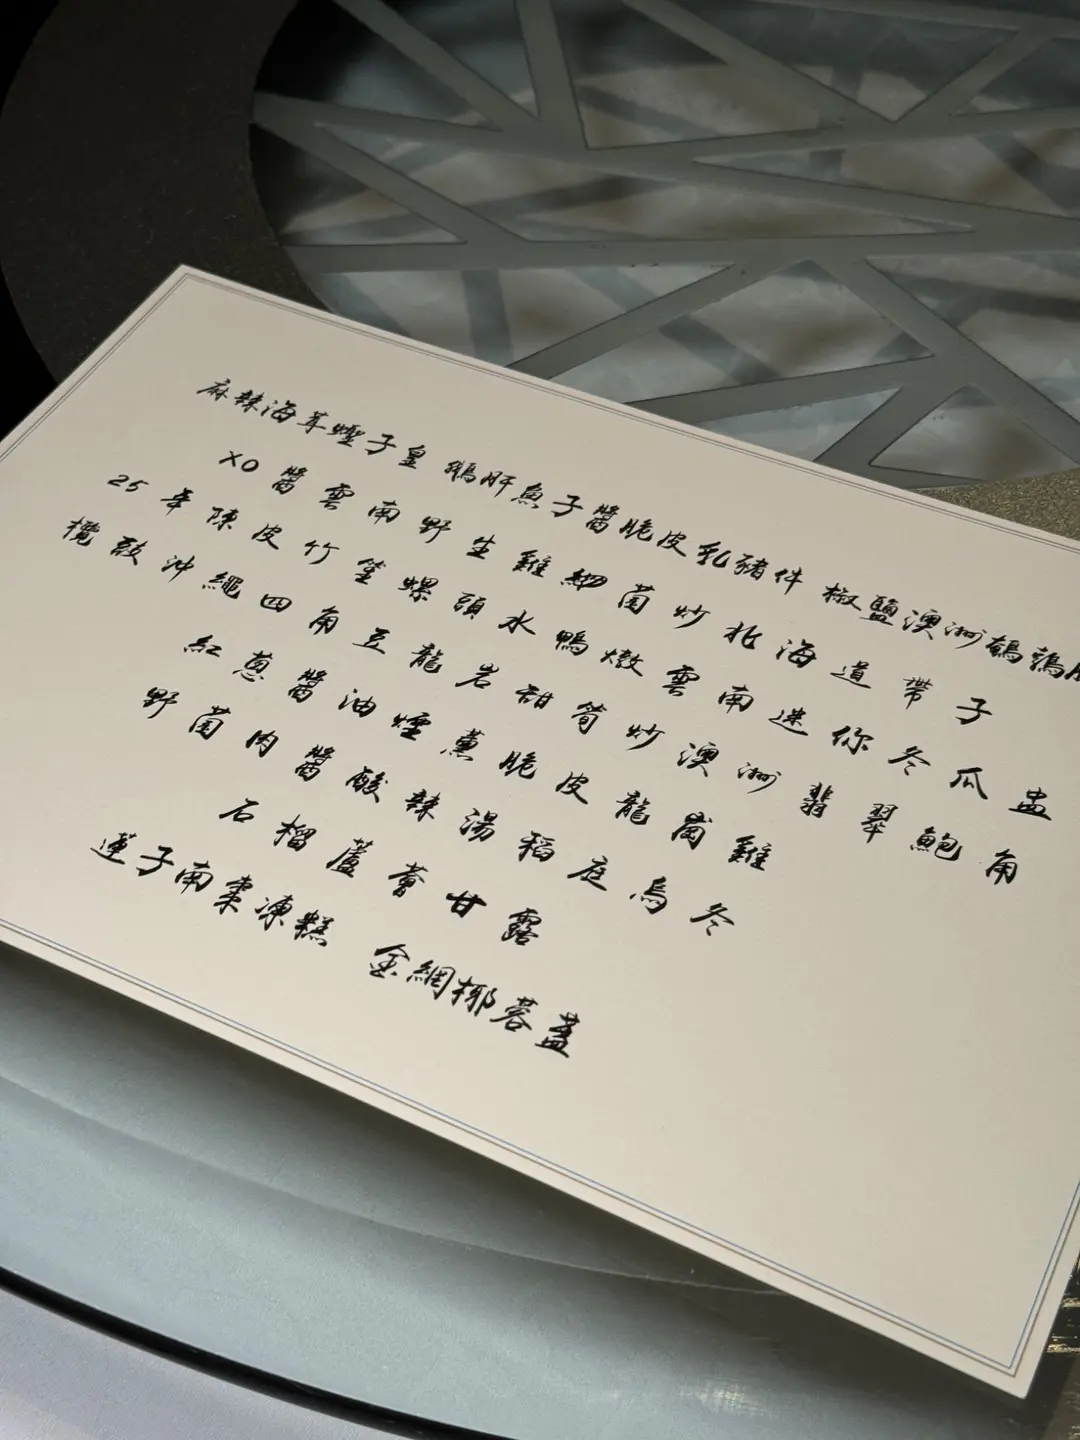 麻辣海茸蟶子皇 鵝肝魚子醬脆皮乳豬件 椒鹽澳洲鵪鶉
XO醬雲南野生雞㘵菌炒北海道帶子
25年陳皮竹笙螺頭水鴨燉雲南迷你冬瓜盅
欖豉沖繩四角豆龍岩甜筍炒澳洲翡翠鮑角
紅蔥醬油煙薰脆皮龍崗雞
野菌肉醬酸辣湯稻庭烏冬
石榴蘆薈甘露
蓮子南棗凍糕 金網椰蓉盞